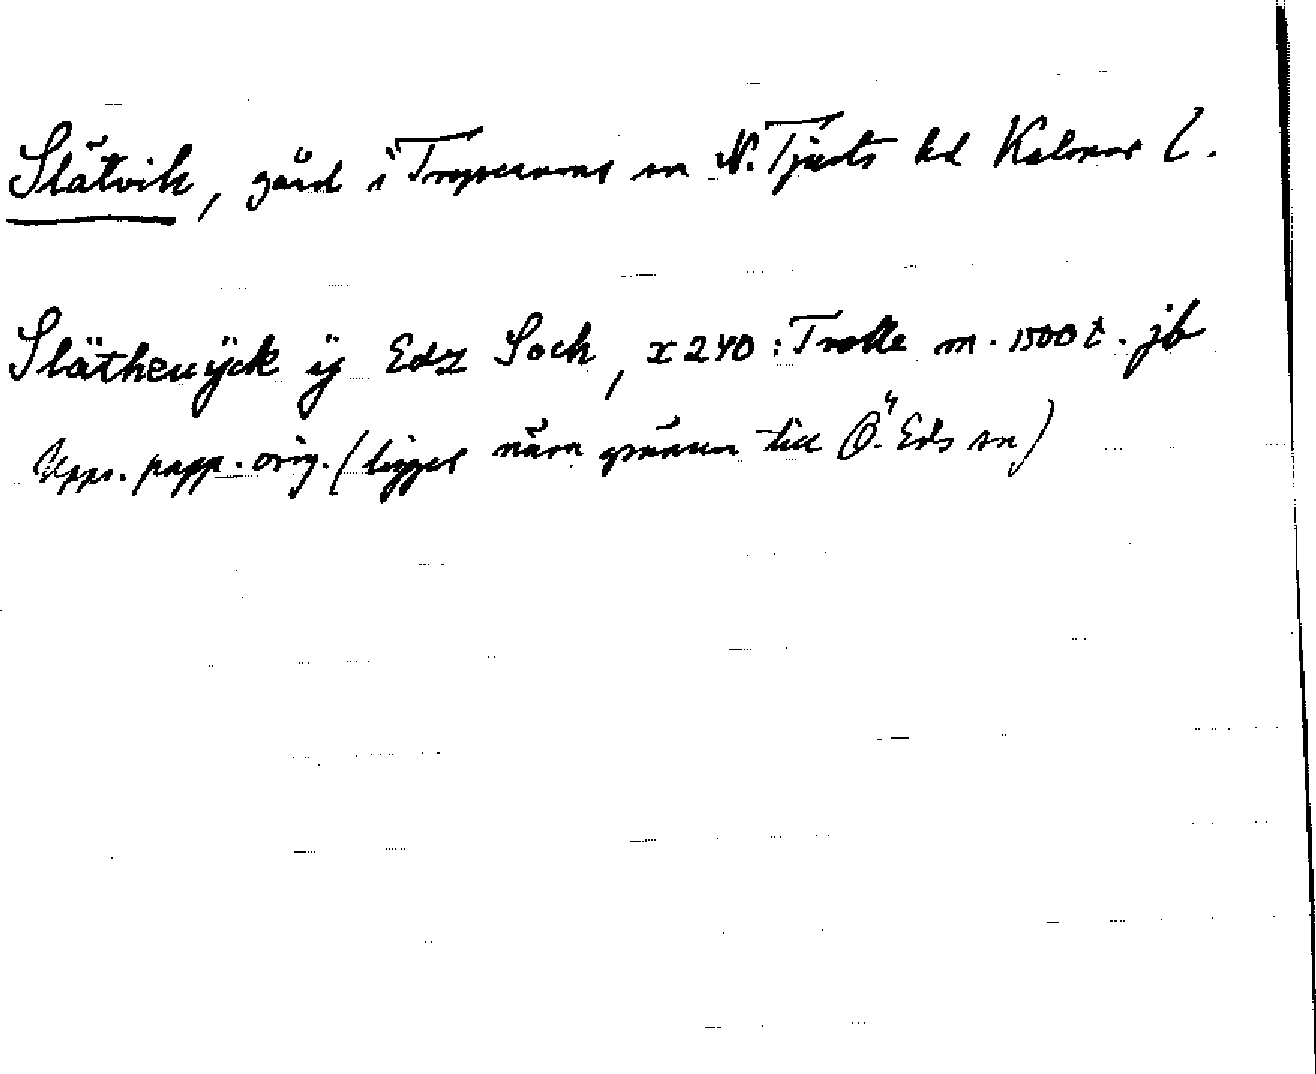 Slätvik, gård i Tryserums sn N. Tjusts hd Kalmar l.
Släthewÿck ÿ Edz Sock, x240: Trolle m. 1500 t. jb
Upps. papp. orig. (ligger nära gränsen till Ö. Eds sn)